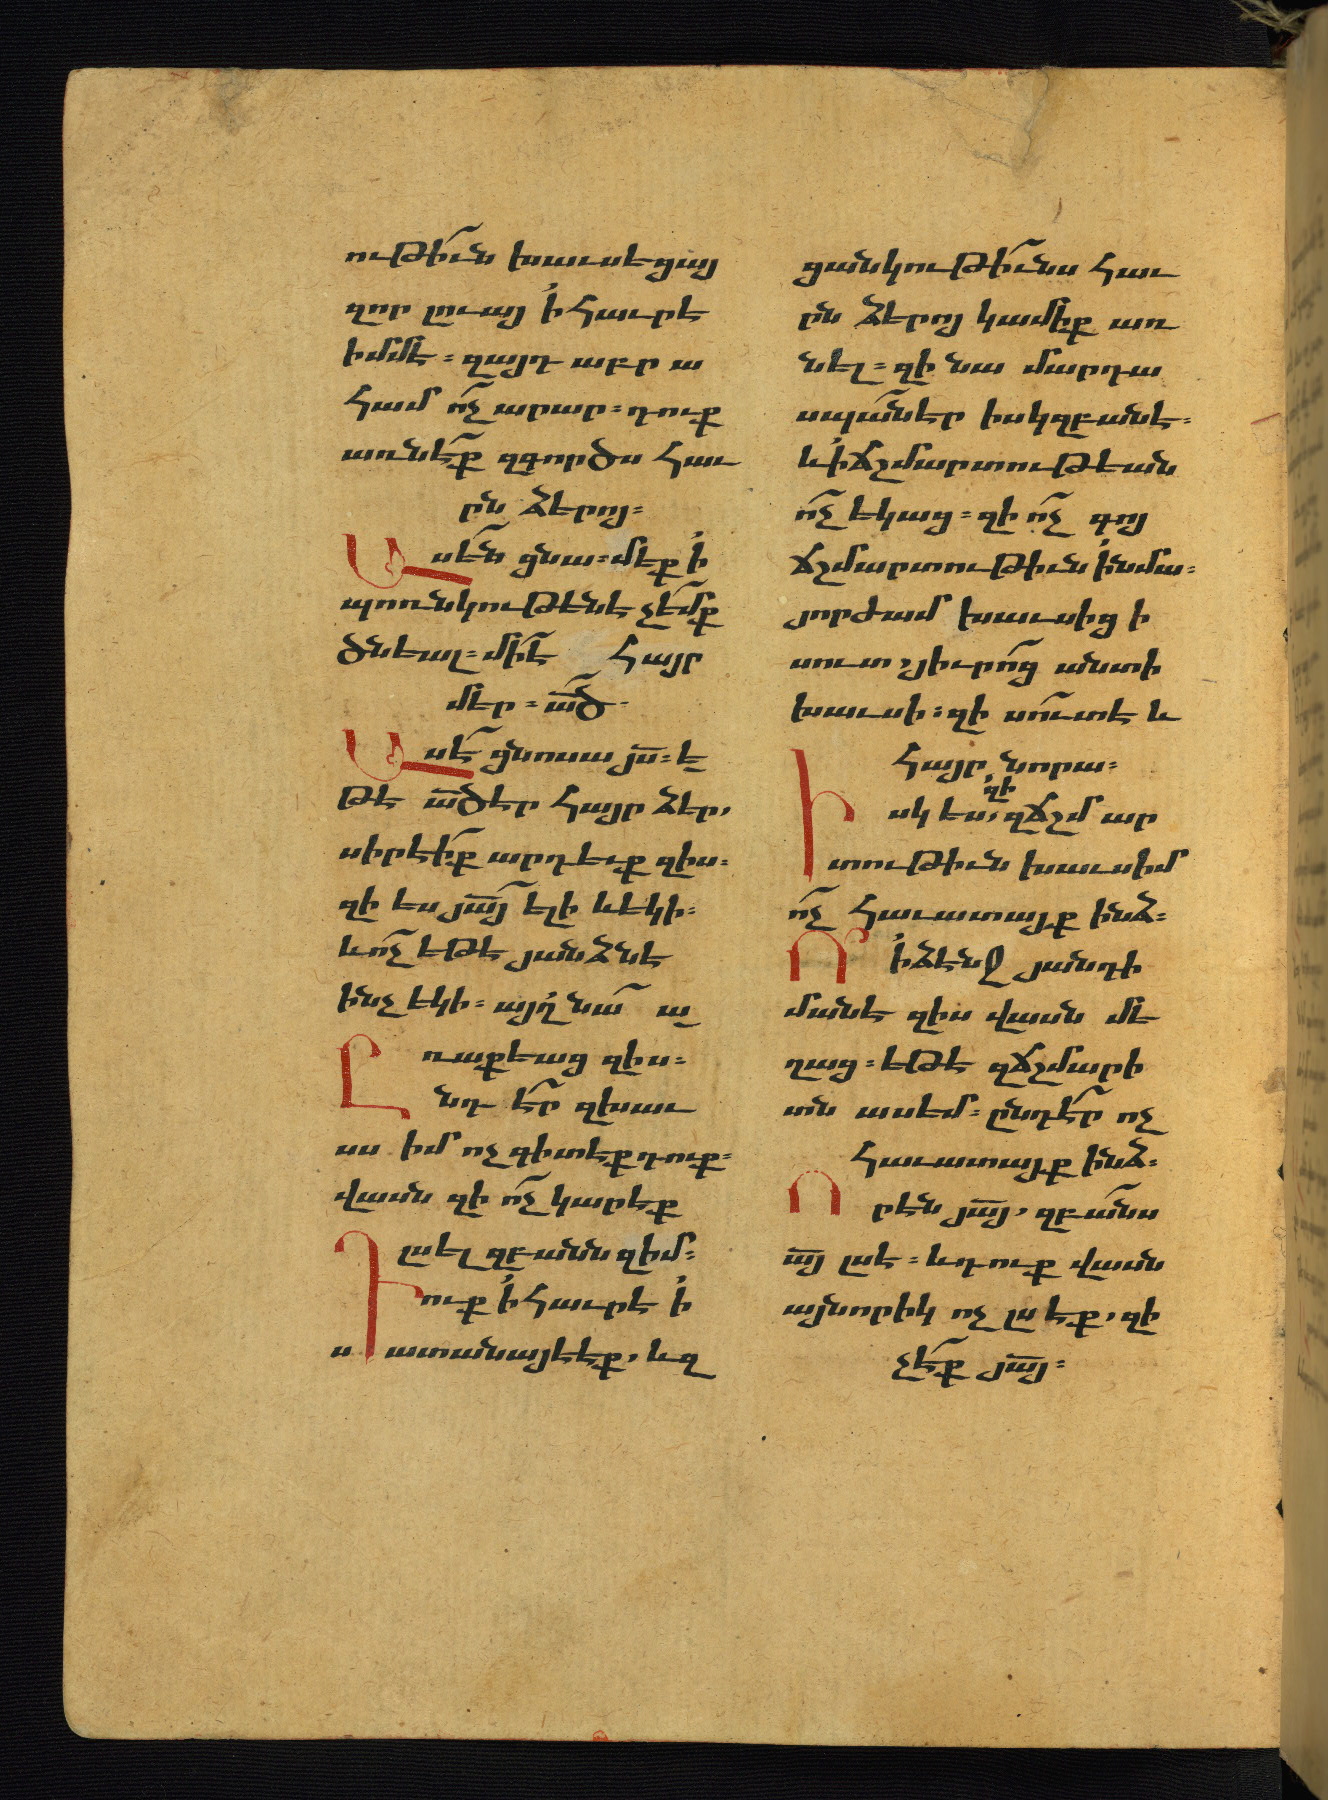 ութի՟ւն խաւսեցայ
զոր լուայ ի հաւրէ
իմմէ ։ զայդ աբր ա
համ ո՟չ արար ։ դուք
առնէ՟ք զգործս հաւ
րն ձերոյ ։
Ասե՟ն ցնա ։ մեք ի
պոռնկութենէ չե՟մք
ծնեալ ։ մի՟ է հայր
մեր ։ ա՟ծ ։
Ասէ՟ ցնոսա յ՟ս ։ ե
թե ա՟ծ էր հայր ձեր,
սիրէի՟ք արդեւք զիս ։
զի ես յա՟յ ելի և եկի ։
և ո՟չ եթե յանձնէ
ինչ եկի ։ այղ նա՟ ա
ռաքեաց զիս ։
Ընդ ե՟ր զխաւ
սս իմ ոչ գիտէք դուք ։
վասն զի ո՟չ կարէք
լսել զբանն զիմ ։
Դուք ի հաւրէ ի
սատանայէ էք, և զ
ցանկութի՟ւնս հաւ
րն ձերոյ կամիք առ
նել ։ զի նա մարդա
սպա՟ն էր իսկզբանէ ։
և ի ճշմարտութեան
ո՟չ եկաց ։ զի ո՟չ գոյ
ճշմարտութիւն ի նմա ։
յորժամ խաւսից ի
սուտ, յիւրո՟ց անտի
խաւսի ։ զի սո՟ւտ է և
հայր նորա ։
Իսկ ես, զի զճշմար
տութիւն խաւսիմ
ո՟չ հաւատայք ինձ ։
Ո՟ ի ձենջ յանդի
մանէ զիս վասն մե
ղաց ։ եթե զճշմարի
տն ասեմ ։ ընդէ՟ր ոչ
հաւատայք ինձ ։
Որ է ն յա՟յ, զբա՟նս
ա՟յ լսէ ։ և դուք վասն
այնորիկ ոչ լսէք, զի
չէ՟ք յա՟յ ։